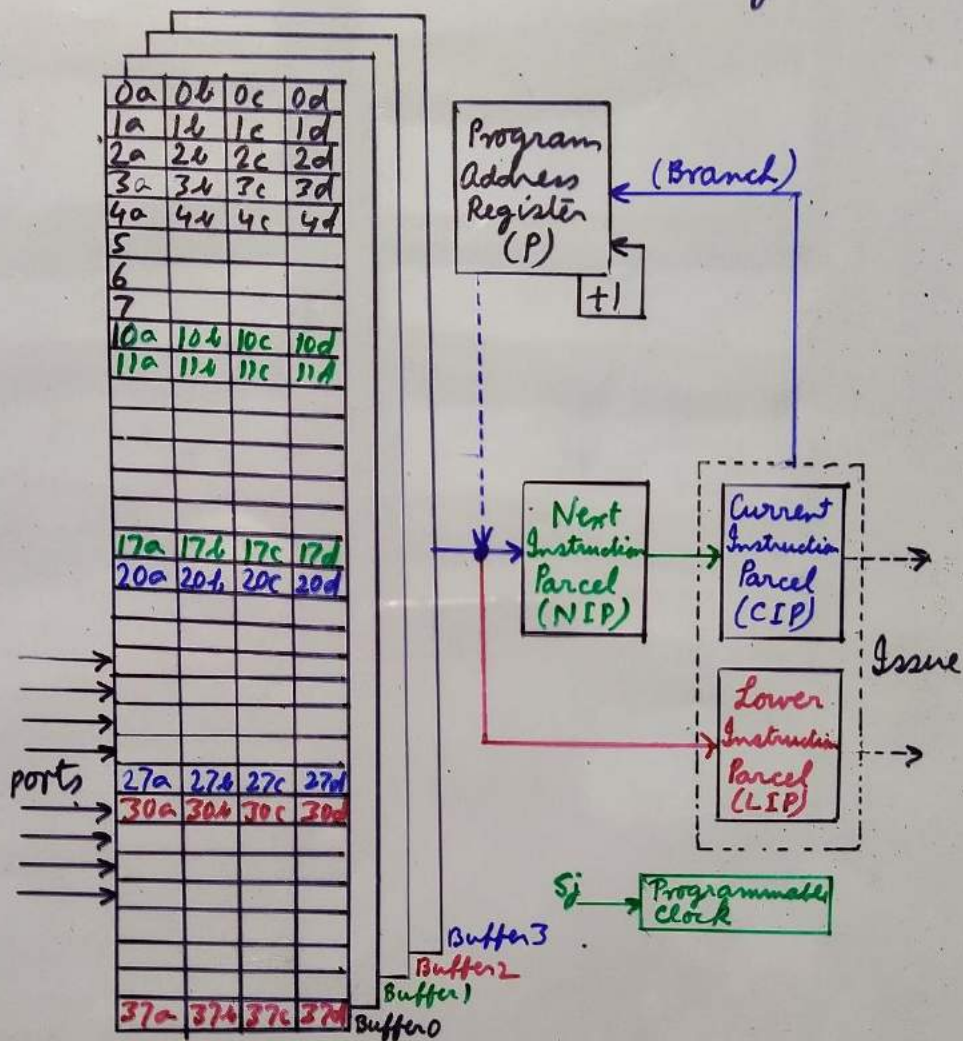 0a 0b 0c 0d
1a 1b 1c 1d
2a 2b 2c 2d
3a 3b 3c 3d
4a 4b 4c 4d
5
6
7
10a 10b 10c 10d
11a 11b 11c 11d
17a 17b 17c 17d
20a 20b 20c 20d
27a 27b 27c 27d
30a 30b 30c 30d
37a 37b 37c 37d
ports
Buffer0
Buffer1
Buffer2
Buffer3
Program
Address
Register
(P)
+1
(Branch)
Next
Instruction
Parcel
(NIP)
Current
Instruction
Parcel
(CIP)
Lower
Instruction
Parcel
(LIP)
Issue
Sj
Programmable
Clock